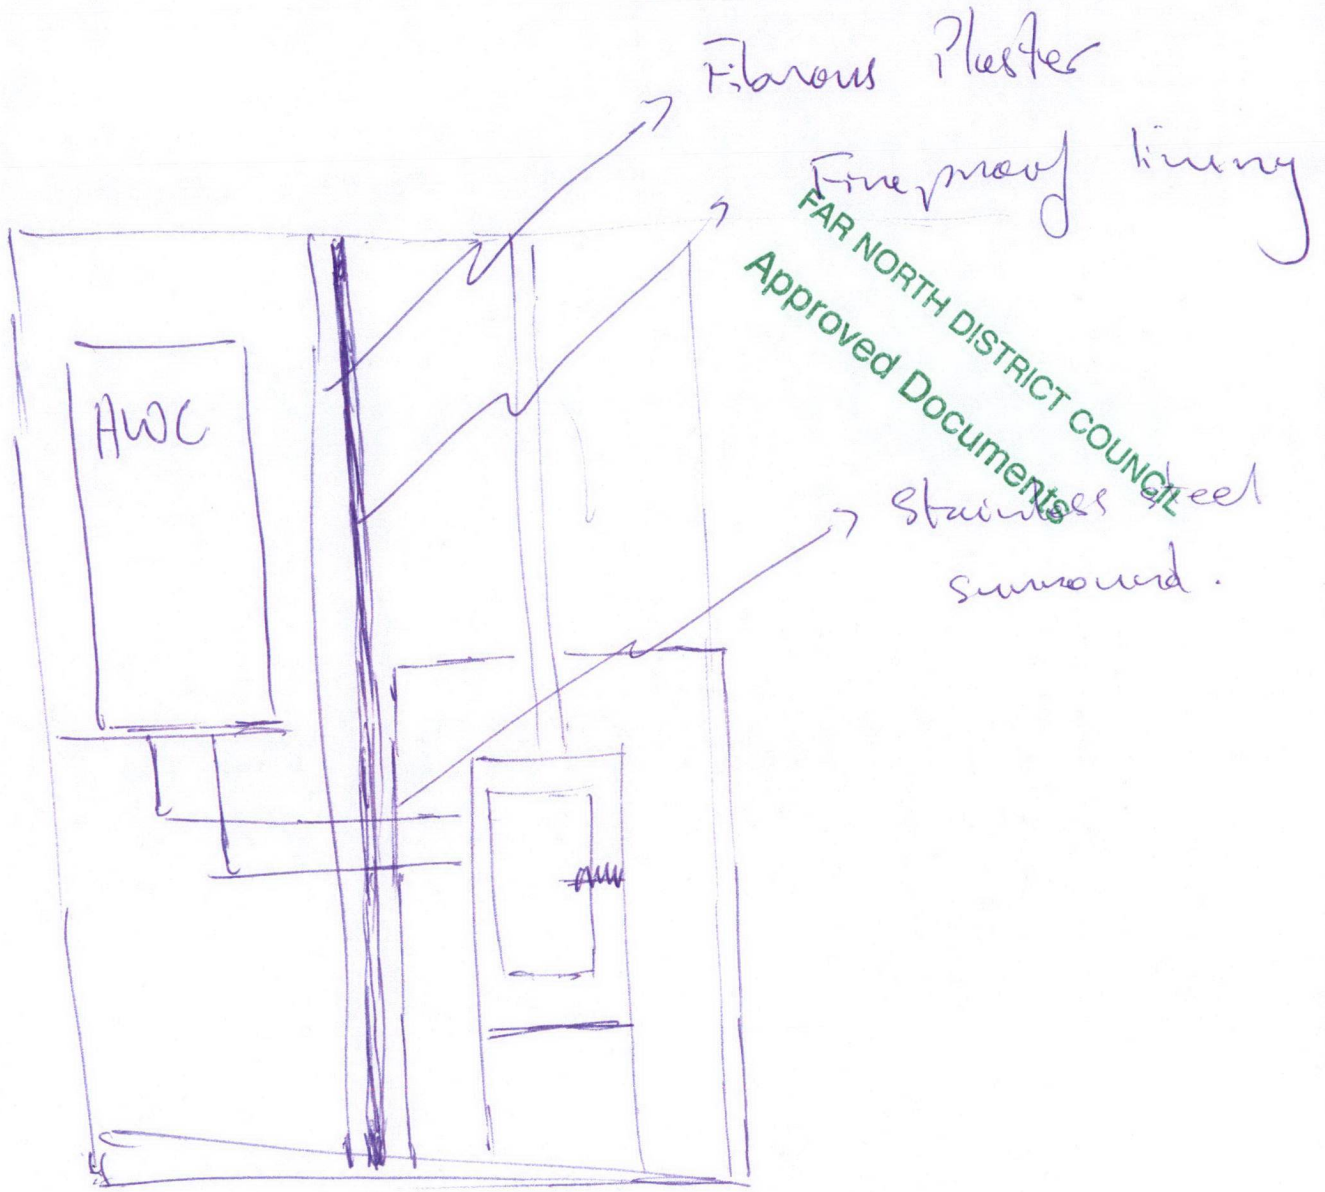 Fibrous Plaster
Fireproof lining
FAR NORTH DISTRICT COUNCIL
Approved Documents
HWC
Stainless steel
surround.